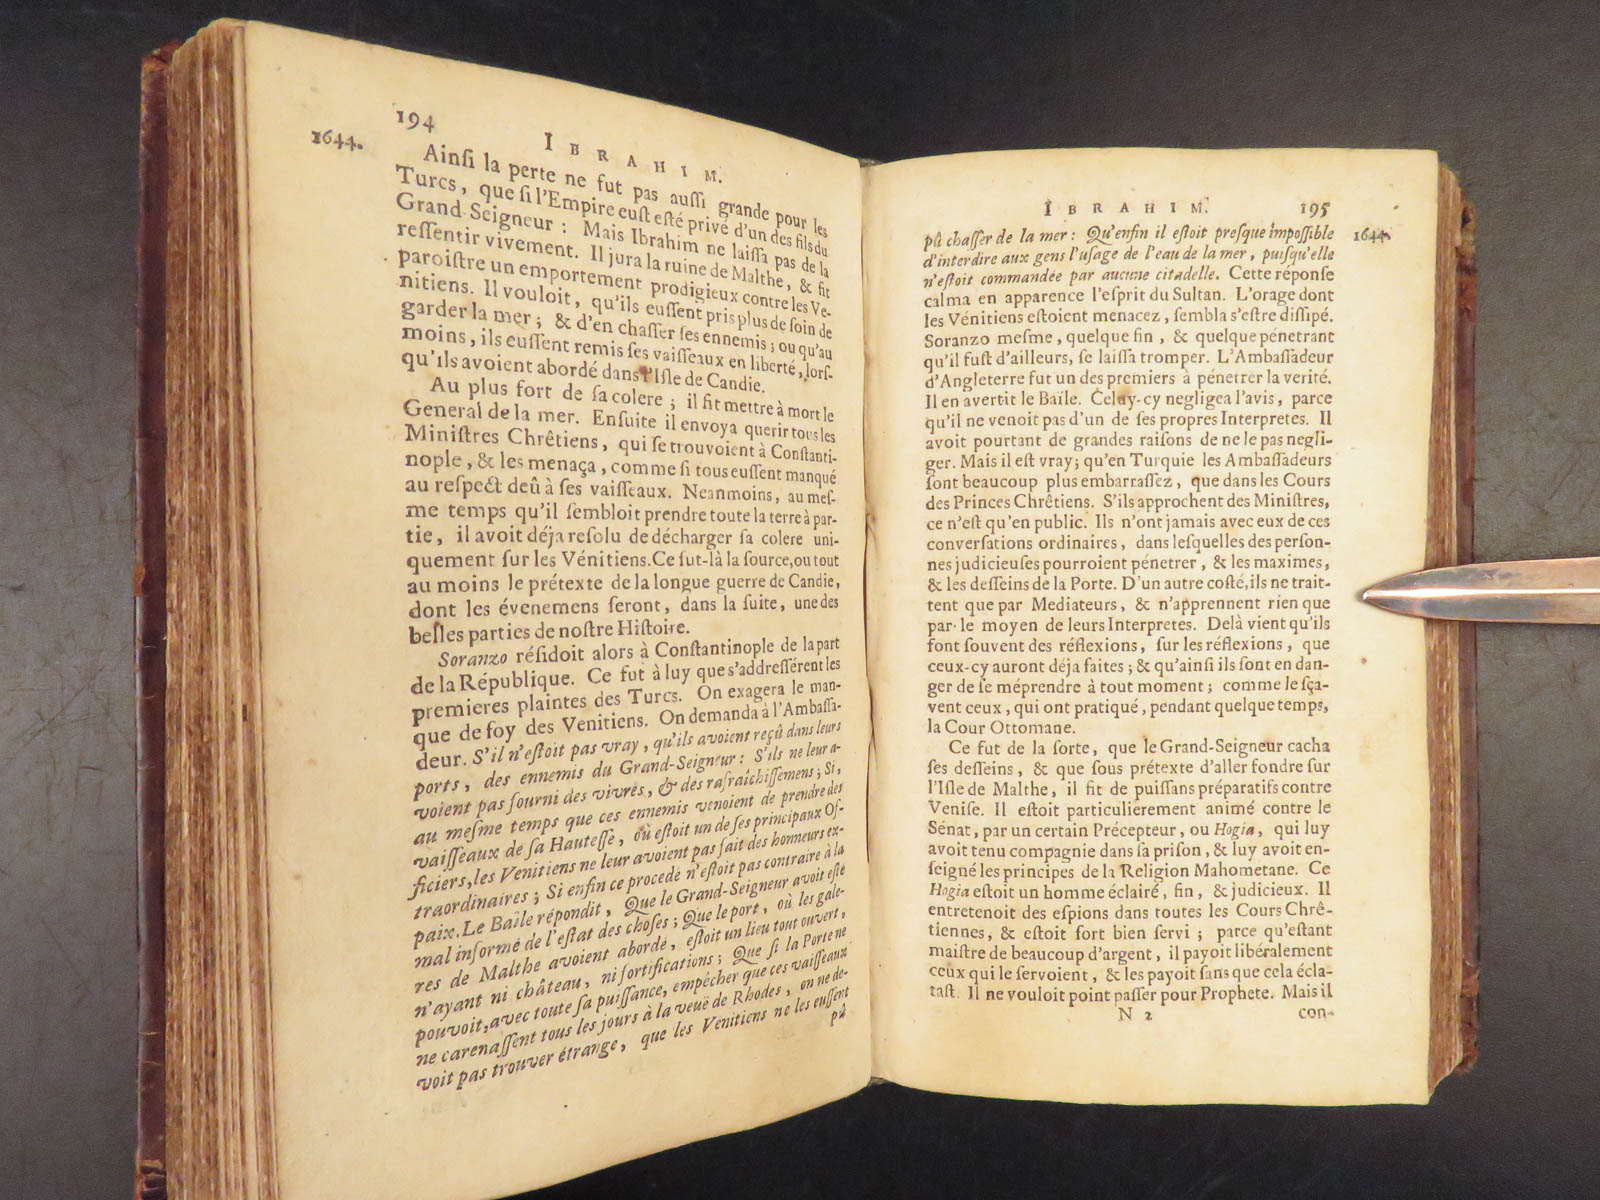 194
IBRAHIM.
1644.
Ainſi la perte ne fut pas auſſi grande pour les
Turcs, que ſi l'Empire euſt eſté privé d'un des fils du
Grand-Seigneur : Mais Ibrahim ne laiſſa pas de la
reſſentir vivement. Il jura la ruine de Malthe, & fit
paroiſtre un emportement prodigieux contre les Ve-
nitiens. Il vouloit, qu'ils euſſent pris plus de ſoin de
garder la mer ; & d'en chaſſer ſes ennemis ; ou qu'au
moins, ils euſſent remis ſes vaiſſeaux en liberté, lorſ-
qu'ils avoient abordé dans l'Iſle de Candie.
Au plus fort de ſa colere ; il fit mettre à mort le
General de la mer. Enſuite il envoya querir tous les
Miniſtres Chrêtiens, qui ſe trouvoient à Conſtanti-
nople, & les menaça, comme ſi tous euſſent manqué
au reſpect deû à ſes vaiſſeaux. Neanmoins, au meſ-
me temps qu'il ſembloit prendre toute la terre à par-
tie, il avoit déja reſolu de décharger ſa colere uni-
quement ſur les Vénitiens. Ce fut-là la ſource, ou tout
au moins le prétexte de la longue guerre de Candie,
dont les évenemens ſeront, dans la ſuite, une des
belles parties de noſtre Hiſtoire.
Soranzo réſidoit alors à Conſtantinople de la part
de la République. Ce fut à luy que s'addreſſérent les
premieres plaintes des Turcs. On exagera le man-
que de foy des Venitiens. On demanda à l'Ambaſſa-
deur. S'il n'eſtoit pas vray, qu'ils avoient reçû dans leurs
ports, des ennemis du Grand-Seigneur : S'ils ne leur a-
voient pas fourni des vivres, & des rafraichiſſemens ; Si,
au meſme temps que ces ennemis venoient de prendre des
vaiſſeaux de ſa Hauteſſe, où eſtoit un de ſes principaux Of-
ficiers, les Vénitiens ne leur avoient pas fait des honneurs ex-
traordinaires ; Si enfin ce procedé n'eſtoit pas contraire à la
paix. Le Baïle répondit, Que le Grand-Seigneur avoit eſté
mal informé de l'eſtat des choſes ; Que le port, où les gale-
res de Malthe avoient abordé, eſtoit un lieu tout ouvert,
n'ayant ni château, ni fortifications ; Que ſi la Porte ne
pouvoit, avec toute ſa puiſſance, empêcher que ces vaiſſeaux
ne carenaſſent tous les jours à la veuë de Rhodes, on ne de-
voit pas trouver étrange, que les Vénitiens ne les euſſent
pû
IBRAHIM.
195
1644.
pû chaſſer de la mer : Qu'enfin il eſtoit preſque impoſſible
d'interdire aux gens l'uſage de l'eau de la mer, puiſqu'elle
n'eſtoit commandée par aucune citadelle. Cette réponſe
calma en apparence l'eſprit du Sultan. L'orage dont
les Vénitiens eſtoient menacez, ſembla s'eſtre diſſipé.
Soranzo meſme, quelque fin, & quelque pénetrant
qu'il fuſt d'ailleurs, ſe laiſſa tromper. L'Ambaſſadeur
d'Angleterre fut un des premiers à pénetrer la verité.
Il en avertit le Baïle. Celuy-cy negligea l'avis, parce
qu'il ne venoit pas d'un de ſes propres Interpretes. Il
avoit pourtant de grandes raiſons de ne le pas negli-
ger. Mais il eſt vray ; qu'en Turquie les Ambaſſadeurs
ſont beaucoup plus embarraſſez, que dans les Cours
des Princes Chrêtiens. S'ils approchent des Miniſtres,
ce n'eſt qu'en public. Ils n'ont jamais avec eux de ces
converſations ordinaires, dans leſquelles des perſon-
nes judicieuſes pourroient pénetrer, & les maximes,
& les deſſeins de la Porte. D'un autre coſté, ils ne trait-
tent que par Mediateurs, & n'apprennent rien que
par le moyen de leurs Interpretes. Delà vient qu'ils
font ſouvent des réflexions, ſur les réflexions, que
ceux-cy auront déja faites ; & qu'ainſi ils ſont en dan-
ger de ſe méprendre à tout moment ; comme le ſça-
vent ceux, qui ont pratiqué, pendant quelque temps,
la Cour Ottomane.
Ce fut de la ſorte, que le Grand-Seigneur cacha
ſes deſſeins, & que ſous prétexte d'aller fondre ſur
l'Iſle de Malthe, il fit de puiſſans préparatifs contre
Veniſe. Il eſtoit particulierement animé contre le
Sénat, par un certain Précepteur, ou Hogia, qui luy
avoit tenu compagnie dans ſa priſon, & luy avoit en-
ſeigné les principes de la Religion Mahometane. Ce
Hogia eſtoit un homme éclairé, fin, & judicieux. Il
entretenoit des eſpions dans toutes les Cours Chrê-
tiennes, & eſtoit fort bien ſervi ; parce qu'eſtant
maiſtre de beaucoup d'argent, il payoit libéralement
ceux qui le ſervoient, & les payoit ſans que cela écla-
taſt. Il ne vouloit point paſſer pour Prophete. Mais il
N 2
con-